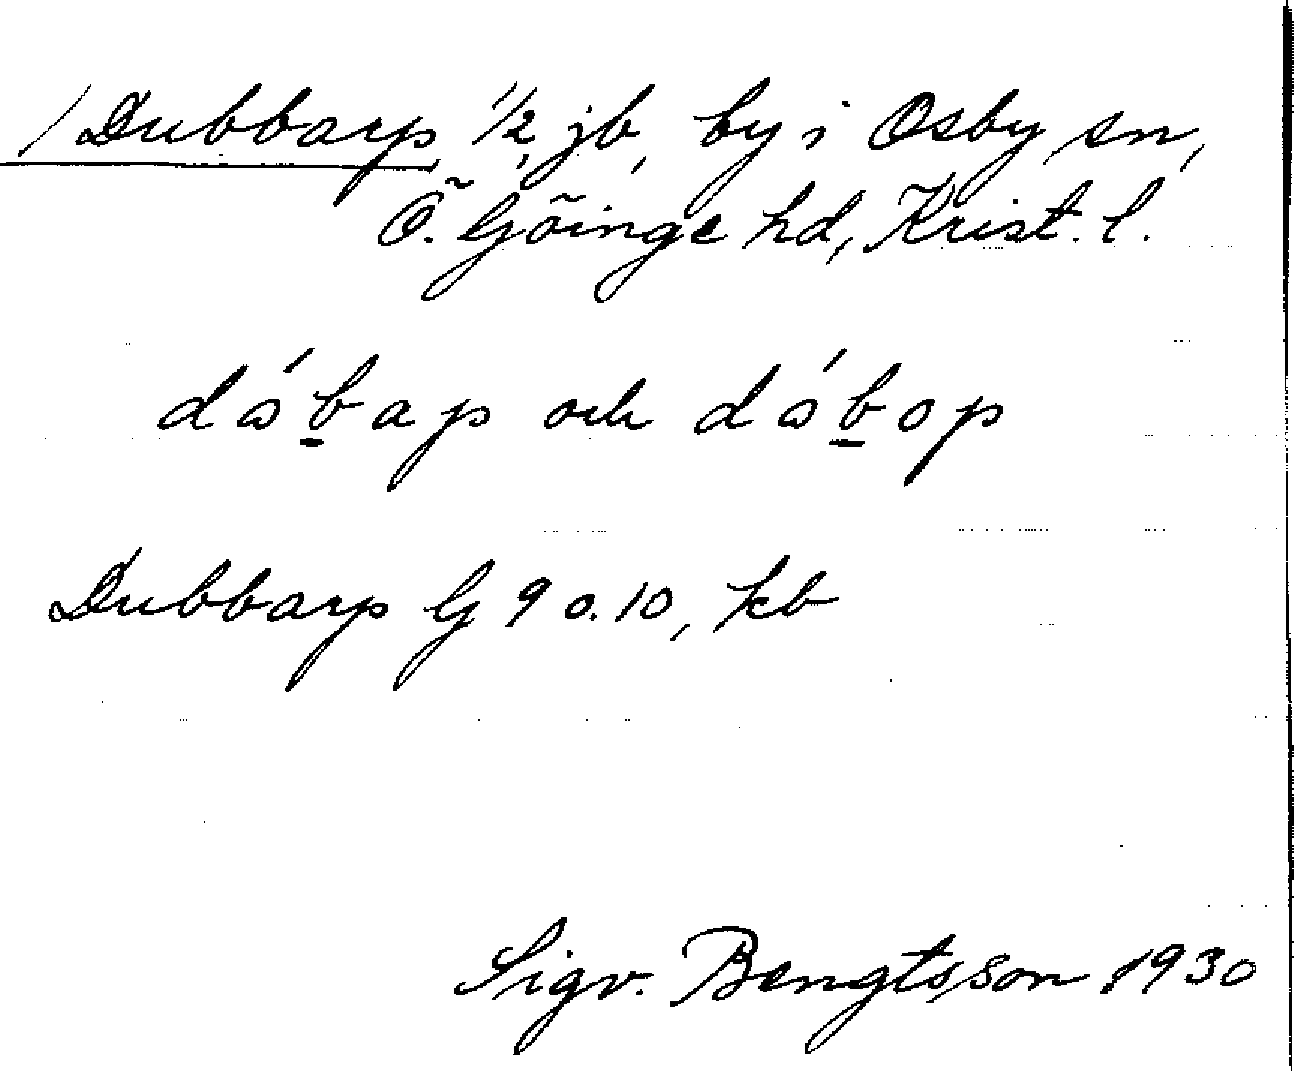 /Dubbarp, 1/2 jb, by i Osby sn,
Ö. Göinge hd, Krist. l.
dábap och dábop
Dubbarp G 9 o. 10, kb
Sigv. Bengtsson 1930